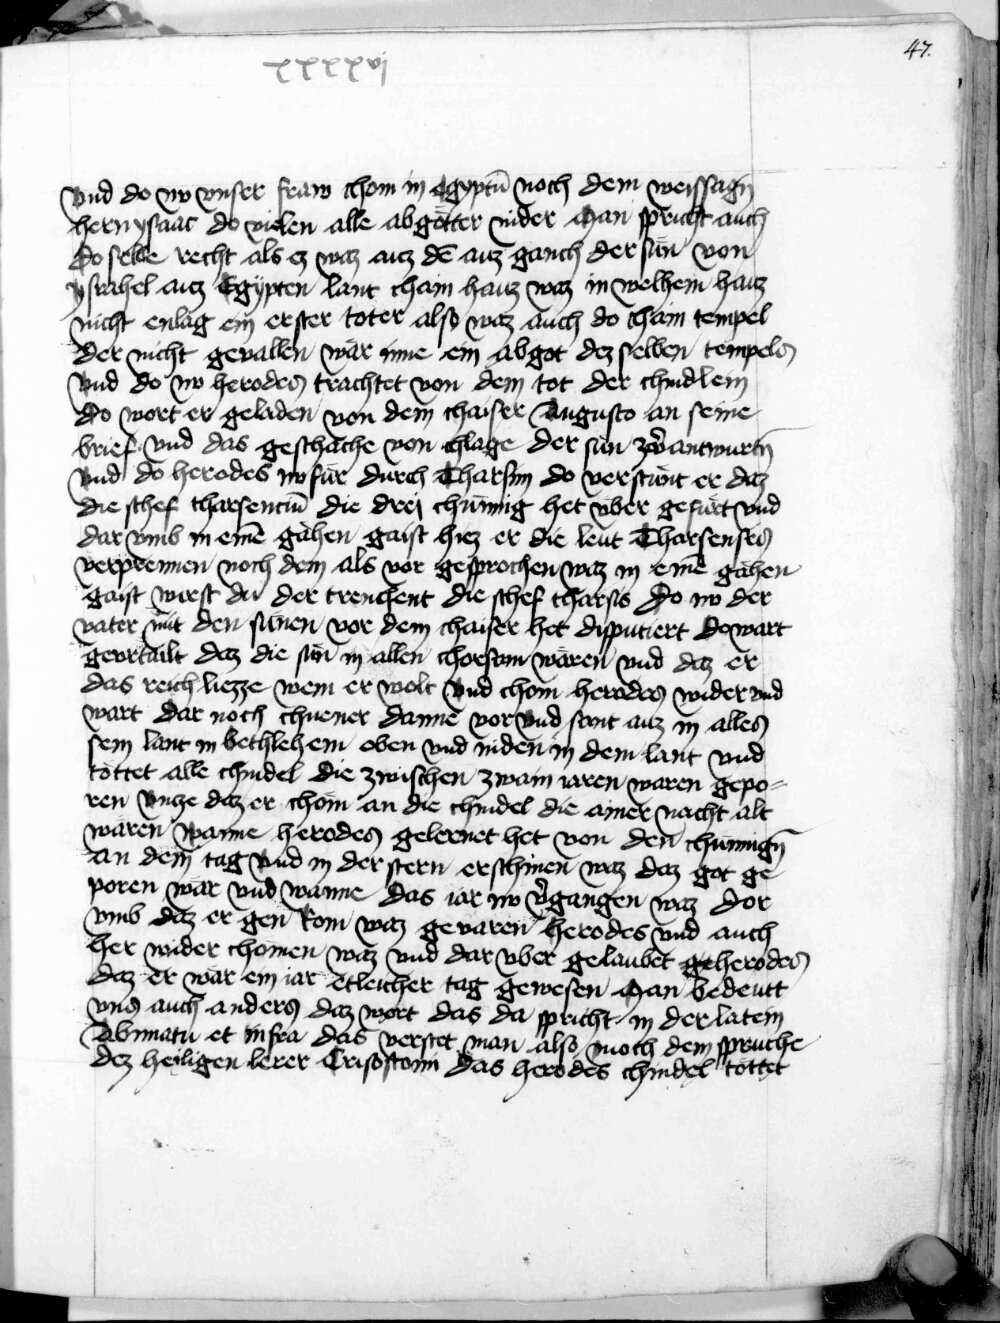 47.
xxxxvi
Vnd do nw vnser fraw chom in Egyptū noch dem weissagn̄
hern ysaac do vielen alle abgötter nider Man spricht auch
do selbe recht als ez waz auz dē auz ganch der sün von
ysrahel auz Egypten lant chain hauz waz in welhem hauz
nicht enlag ein erster toter also waz auch do chain tempel
der nicht gevallen wär inne ein abgot dez selben tempels
Vnd do nw herodes trachtet von dem tot der chindlein
do wort er geladen von dem chaiser Augusto an seine
brief vnd das geschäche von chlage der sün zv̄antwurtn̄
Vnd do herodes nw für durch Tharsim do verstünt er daz
die schef tharsenciū die drei chünnig het vber gefürt vnd
dar vmb in einē gähen gaist hiez er die leut Tharsenses
verprennen noch dem als vor gesprochen waz in einē gähen
gaist wirst du der trenchent die schef tharsis Do nw der
vater mit den sünen vor dem chaiser het disputiert do wart
geurtailt daz die sün in allen chorsam wären vnd daz er
das reich liezze wem er wolt Vnd chom herodes wider vnd
wart dar noch chuener danne vor vnd sant auz in alles
sein lant in bethlehem oben vnd niden in dem lant vnd
töttet alle chindel die zwischen zwain iaren waren gepo-
ren vncze daz er chom an die chindel die ainer nacht alt
wären Wanne herodes gelernet het von den chünnign̄
an dem tag vnd in der stern erschinen waz daz got ge
poren wär vnd wanne das iar nw v̄gangen waz dor
vmb daz er gen Rom waz gevaren herodes vnd auch
her wider chomen waz vnd dar vber gelaubet herodes
daz er wär ein iar etleicher tag gewesen Man bedeutt
vns auch anders daz wort das da spricht in der latein
Abimatu et infra das verstet man also noch dem spruche
dez heiligen lerer Crisostomi das herodes chindel töttet